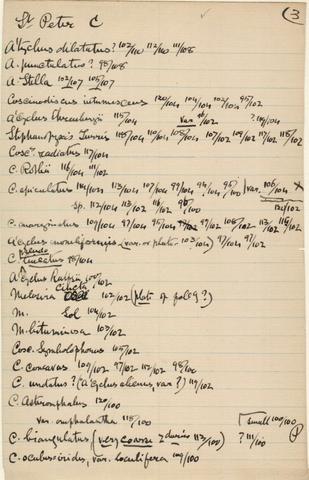 St Peter C
3
A'cyclus dilatatus? 102/110 112/110 111/108
A. punctulatus? 95/108
A. Stella 102/107 105/107
Coscinodiscus intumescens 120/104 104/104 102/104 95/102
A'cyclus Ehrenbergii 115/104 var. 96/102 ? 116/104
Stephanopyxis Turris 115/104 110/104 108/104 107/102 109/102 117/102 118/102
Cosc. radiatus 117/104
C. Rothii 116/104 111/102
C. apiculatus 114/104 113/104 107/104 99/104 94/104 95/100 var. 106/104 X
sp. 112/104 113/102 116/102 96/100 120/102
C. marginatus 109/104 97/104 95/104 97/102 108/102 113/102 116/102
A'cyclus moniliformis (var. or plate. 103/104) 97/104 97/102
pseudo
C. tinectus 98/104
A'cyclus Ralfsii 100/102
cincta
Melosira 102/102 (plate of polcg?)
M. Sol 104/102
M. bituminosa 103/102
Cosc. Symbolophorus 105/102
C. concavus 109/102 97/102 112/102 98/100
C. undatus? (A'cyclus ehrens, var?) 119/102
C. Asteromphalus 120/100
var. omphalantha 118/100 small 100/100
C. biangulatus (very coarse 2 davins 112/100) ? 111/100
C. oculus-iridis, var. loculifera 109/100